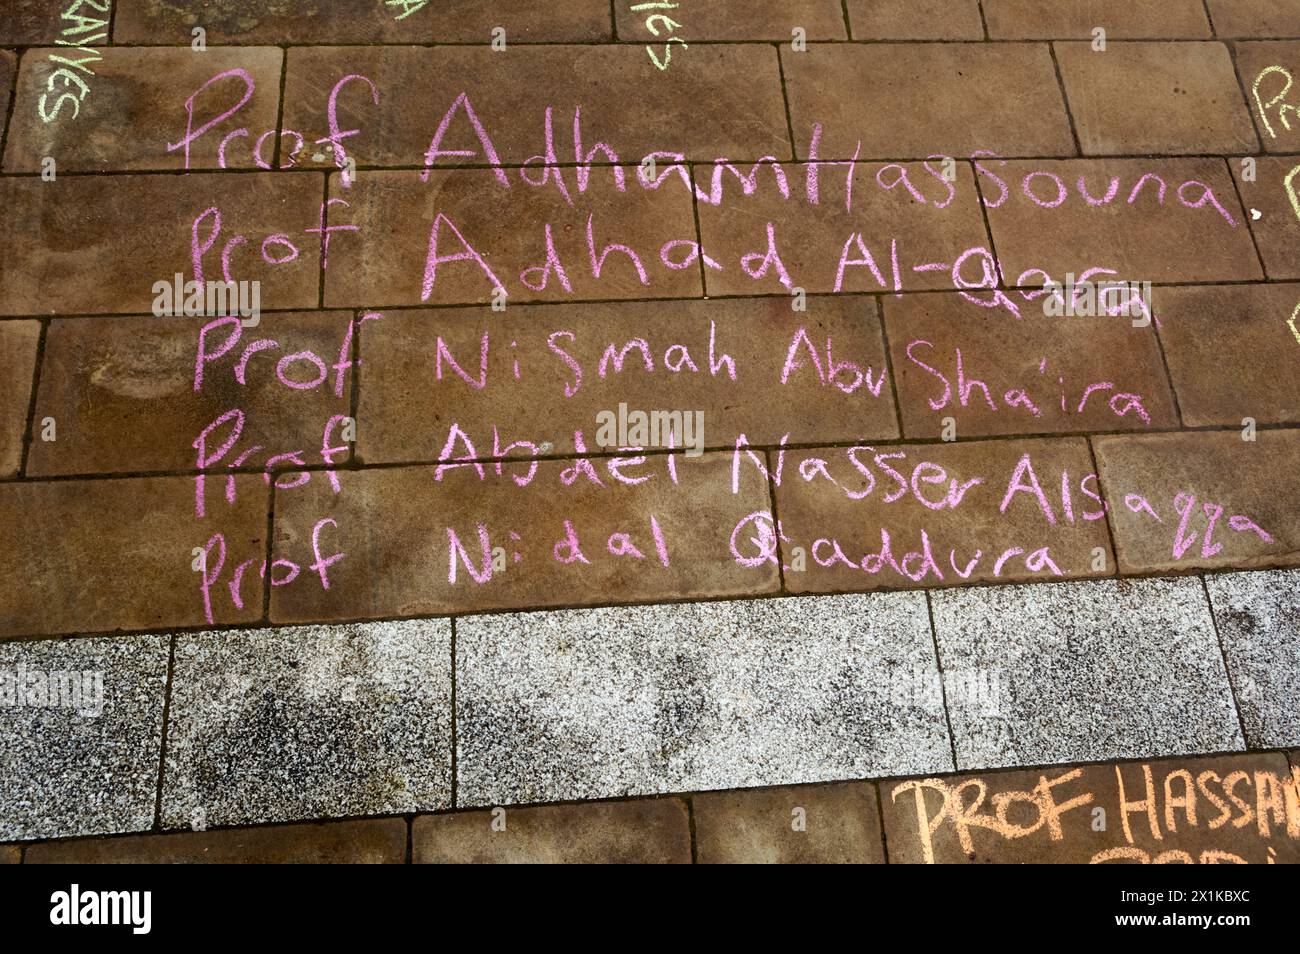 HES
AYES
Prof Adham Hassouna
Prof Adhad Al-Qara
Prof Nismah Abu Sha'ira
Prof Abdel Nasser Alsaqqa
Prof Nidal Qaddura
PROF HASSAN
alamy
Image ID: 2X1KBXC
www.alamy.com